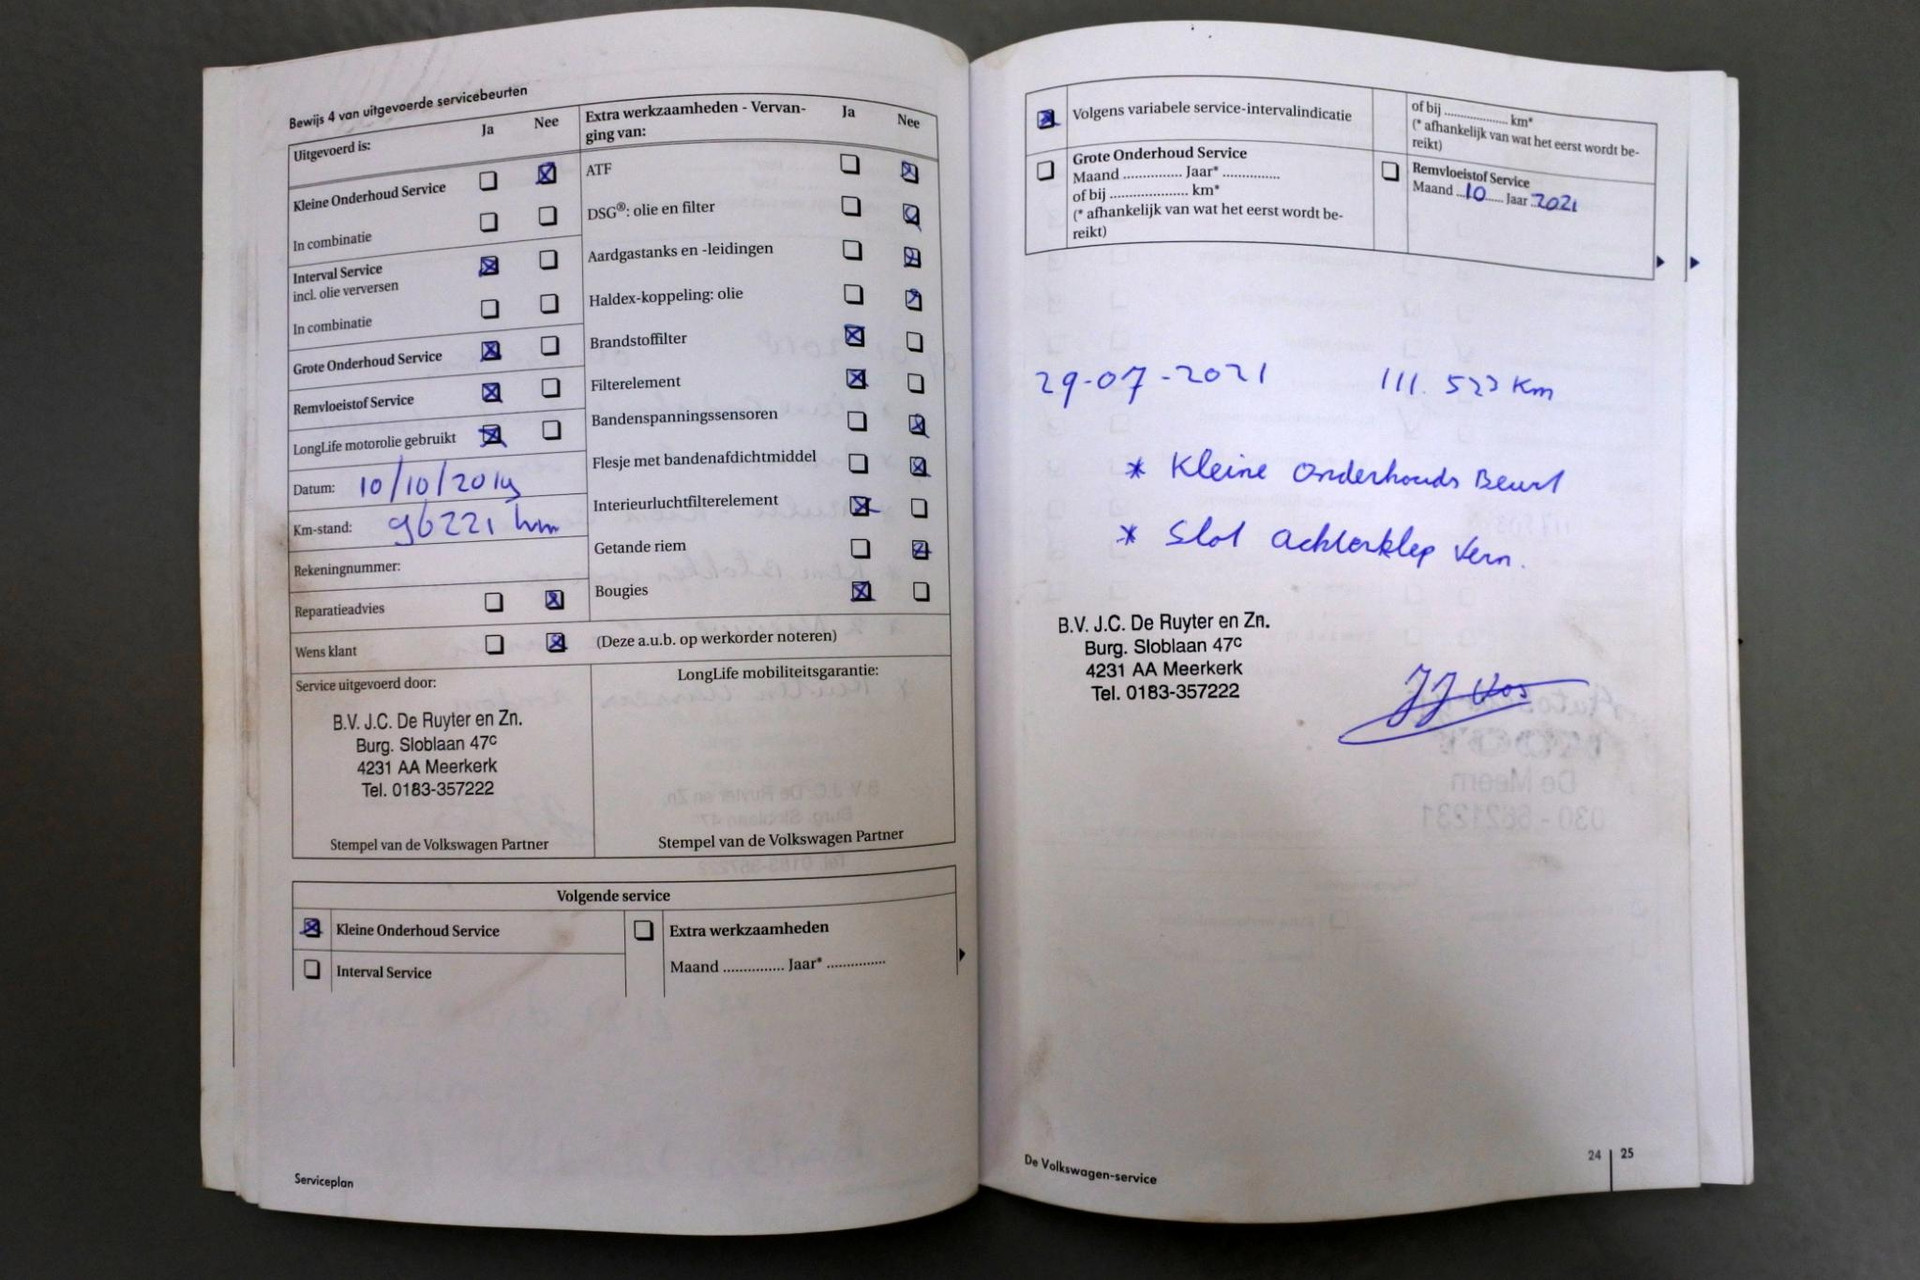 Bewijs 4 van uitgevoerde servicebeurten
Uitgevoerd is: Ja Nee
Kleine Onderhoud Service
In combinatie
Interval Service
incl. olie verversen
In combinatie
Grote Onderhoud Service
Remvloeistof Service
LongLife motorolie gebruikt
Datum: 10/10/2019
Km-stand: 96221 km
Rekeningnummer:
Reparatieadvies
Wens klant
Extra werkzaamheden - Vervan-
ging van: Ja Nee
ATF
DSG®: olie en filter
Aardgastanks en -leidingen
Haldex-koppeling: olie
Brandstoffilter
Filterelement
Bandenspanningssensoren
Flesje met bandenafdichtmiddel
Interieurluchtfilterelement
Getande riem
Bougies
(Deze a.u.b. op werkorder noteren)
Service uitgevoerd door:
B.V. J.C. De Ruyter en Zn.
Burg. Sloblaan 47c
4231 AA Meerkerk
Tel. 0183-357222
Stempel van de Volkswagen Partner
LongLife mobiliteitsgarantie:
Stempel van de Volkswagen Partner
Volgende service
Kleine Onderhoud Service
Interval Service
Extra werkzaamheden
Maand ............... Jaar* ...............
Serviceplan
Volgens variabele service-intervalindicatie
Grote Onderhoud Service
Maand ............... Jaar* ...............
of bij .................... km*
(* afhankelijk van wat het eerst wordt be-
reikt)
of bij .................... km*
(* afhankelijk van wat het eerst wordt be-
reikt)
Remvloeistof Service
Maand 10 Jaar 2021
29-07-2021 111.523 Km
* Kleine Onderhouds Beurt
* Slot achterklep Vern.
B.V. J.C. De Ruyter en Zn.
Burg. Sloblaan 47c
4231 AA Meerkerk
Tel. 0183-357222
JJ Vos
De Volkswagen-service
24 | 25